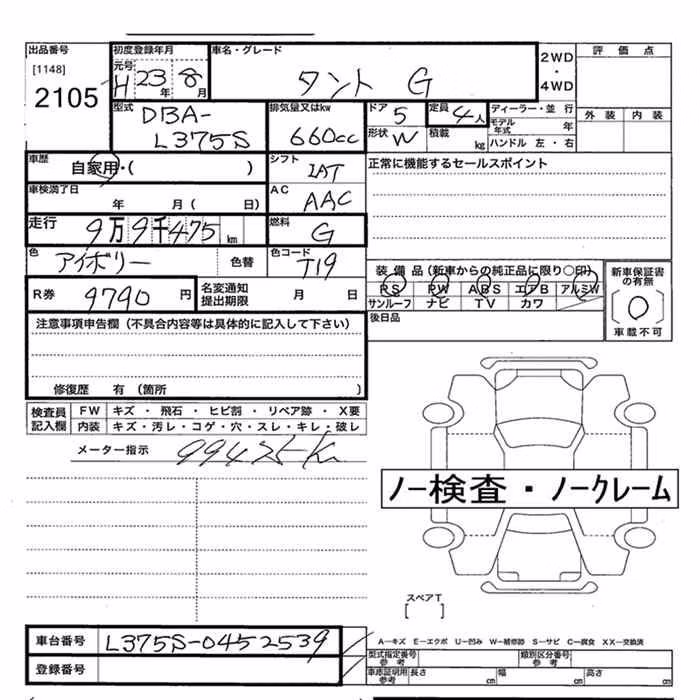 出品番号
[1148]
2105
初度登録年月
元号
H 23年 8月
車名・グレード
タント G
2WD
・
4WD
評価点
外装 内装
型式
DBA-
L375S
排気量又はkw
660cc
ドア 5
形状 W
定員 4人
積載 kg
ディーラー・並行
モデル年式 年
ハンドル 左・右
車歴
自家用・( )
シフト
IAT
正常に機能するセールスポイント
車検満了日
年 月( 日)
AC
AAC
走行
9万9千475km
燃料
G
色
アイボリー
色替
色コード
T19
R券 9790円
名変通知
提出期限
月 日
装備品(新車からの純正品に限り○印)
PS PW ABS エアB アルミW
サンルーフ ナビ TV カワ
後日品
新車保証書
の有無
[○]
車載不可
注意事項申告欄(不具合内容等は具体的に記入して下さい)
修復歴 有(箇所 )
検査員
記入欄
FW キズ・飛石・ヒビ割・リペア跡・X要
内装 キズ・汚レ・コゲ・穴・スレ・キレ・破レ
メーター指示
ノー検査・ノークレーム
スペアT
[ ]
車台番号 L375S-0452539
登録番号
A―キズ E―エクボ U―凹み W―補修跡 S―サビ C―腐食 XX―交換済
型式指定番号
参考
類別区分番号
参考
車庫証明用
参考
長さ cm 幅 cm 高さ cm